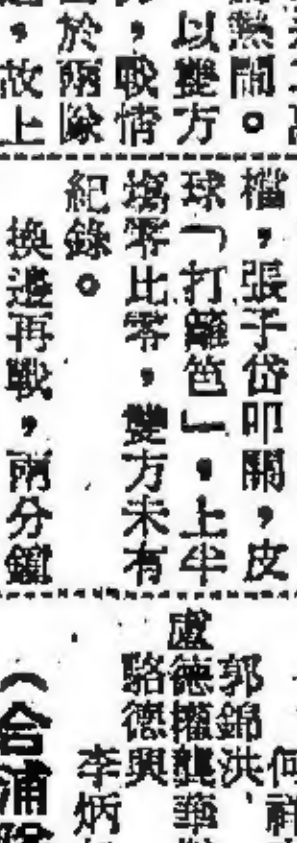 熱鬧。
以雙方
，戰情
於兩隊
，故上
檔，張子岱叩關，皮
球「打籬笆」，上半
塲零比零，雙方未有
紀錄。
換邊再戰，兩分鐘
何祥
郭錦洪、
盧德權龔華
駱德興
李炳
（合浦隊